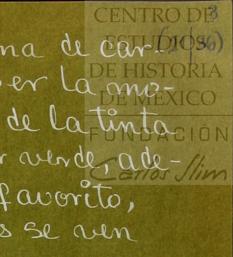 CENTRO DE
ESTUDIOS
DE HISTORIA
DE MÉXICO
FUNDACIÓN
Carlos Slim
3
na de car-
er la mo-
de la tinta
r verde, ade-
favorito,
s se ven